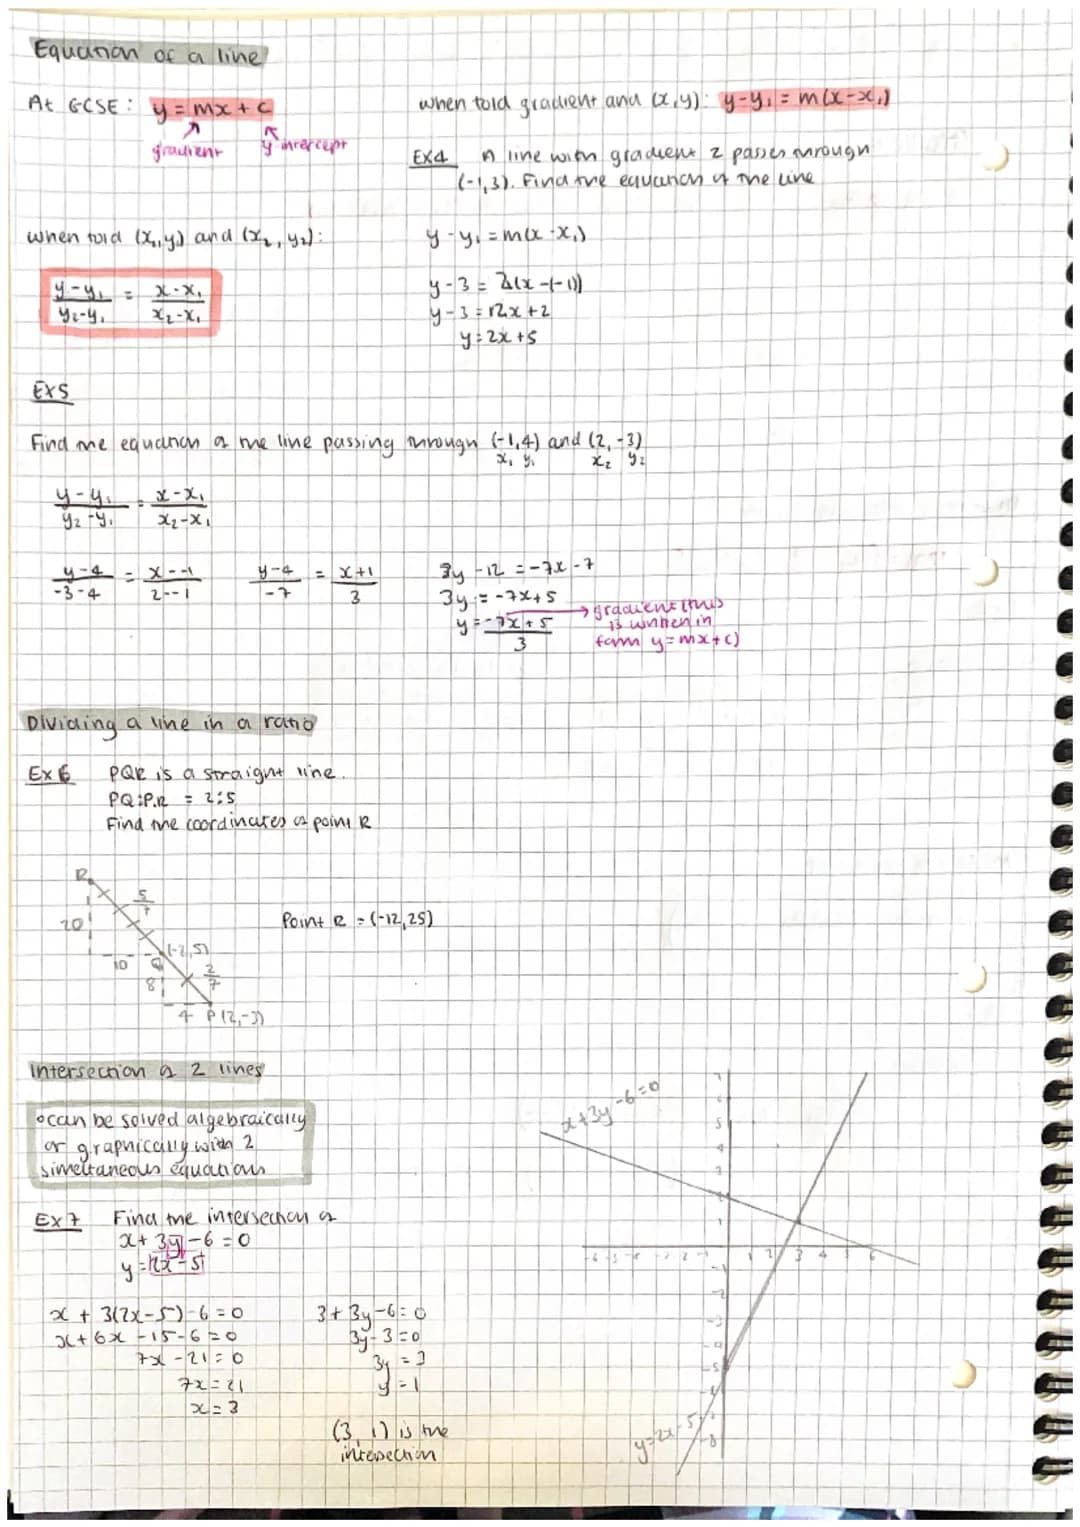 Equation of a line
At GCSE: y = mx + c
gradient
y-intercept
when told gradient and (x,y): y-y₁ = m(x-x₁)
Ex4 A line with gradient 2 passes through
(-1,3). Find the equation of the line
y-y₁ = m(x-x₁)
y-3 = 2(x-(-1))
y-3 = 2x+2
y = 2x+5
when told (x₁,y₁) and (x₂,y₂):
y-y₁ / y₂-y₁ = x-x₁ / x₂-x₁
Ex5
Find the equation of the line passing through (-1,4) and (2,-3)
x₁ y₁ x₂ y₂
y-y₁ / y₂-y₁ = x-x₁ / x₂-x₁
y-4 / -3-4 = x--1 / 2--1
y-4 / -7 = x+1 / 3
3y-12 = -7x-7
3y = -7x+5
y = -7x+5 / 3
gradient (this
is written in
form y=mx+c)
Dividing a line in a ratio
Ex 6 PQR is a straight line.
PQ:P.R = 2:5
Find the coordinates of point R
R
5/7
20
10
Q
(-2,5)
2/7
8
4 P(2,-3)
Point R = (-12,25)
Intersection of 2 lines
can be solved algebraically
or graphically with 2
simeltaneous equations
Ex7 Find the intersection of
x+3y-6=0
y=2x-5
x + 3(2x-5)-6=0
x+6x-15-6=0
7x-21=0
7x=21
x=3
3+3y-6=0
3y-3=0
3y=3
y=1
(3,1) is the
intersection
x+3y-6=0
y=2x-5